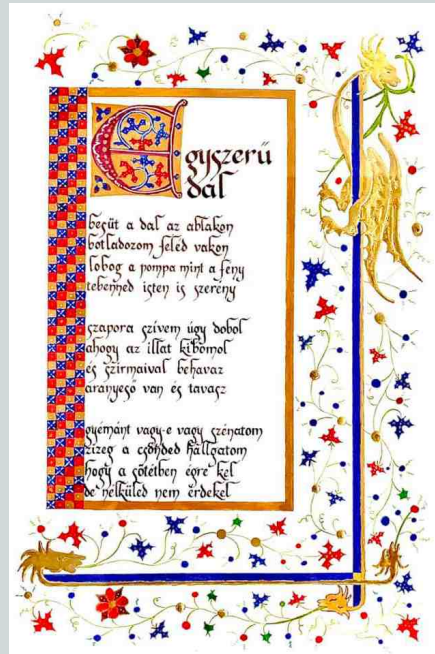 Egyszerű
dal
besüt a dal az ablakon
botladozom feléd vakon
lobog a pompa mint a fény
tebenned isten is szerény
szapora szivem úgy dobol
ahogy az illat kibomol
és szirmaival behavaz
aranyeső van és tavasz
gyémánt vagy-e vagy szénatom
zizeg a csönded hallgatom
hogy a sötétben égre kel
de nélküled nem érdekel